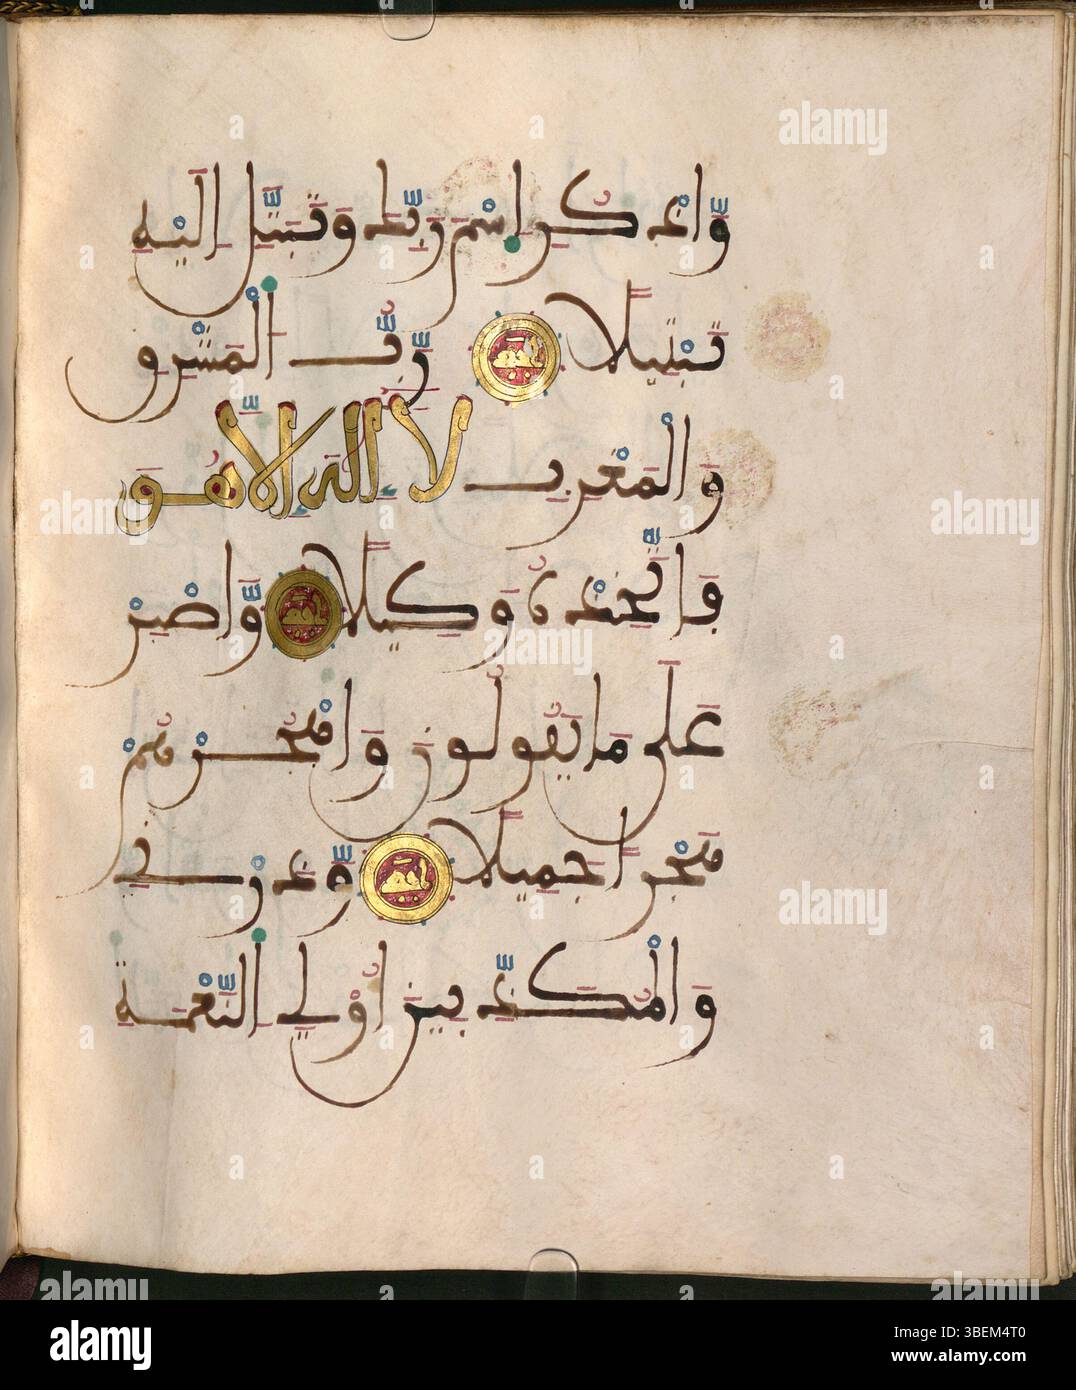 وَاذْكُرِ اسْمَ رَبِّكَ وَتَبَتَّلْ إِلَيْهِ
تَبْتِيلًا رَّبُّ الْمَشْرِقِ
وَالْمَغْرِبِ لَا إِلَهَ إِلَّا هُوَ
فَاتَّخِذْهُ وَكِيلًا وَاصْبِرْ
عَلَى مَا يَقُولُونَ وَاهْجُرْهُمْ
هَجْرًا جَمِيلًا وَذَرْنِي
وَالْمُكَذِّبِينَ أُوْلِي النَّعْمَةِ
alamy
Image ID: 3BEM4T0
www.alamy.com